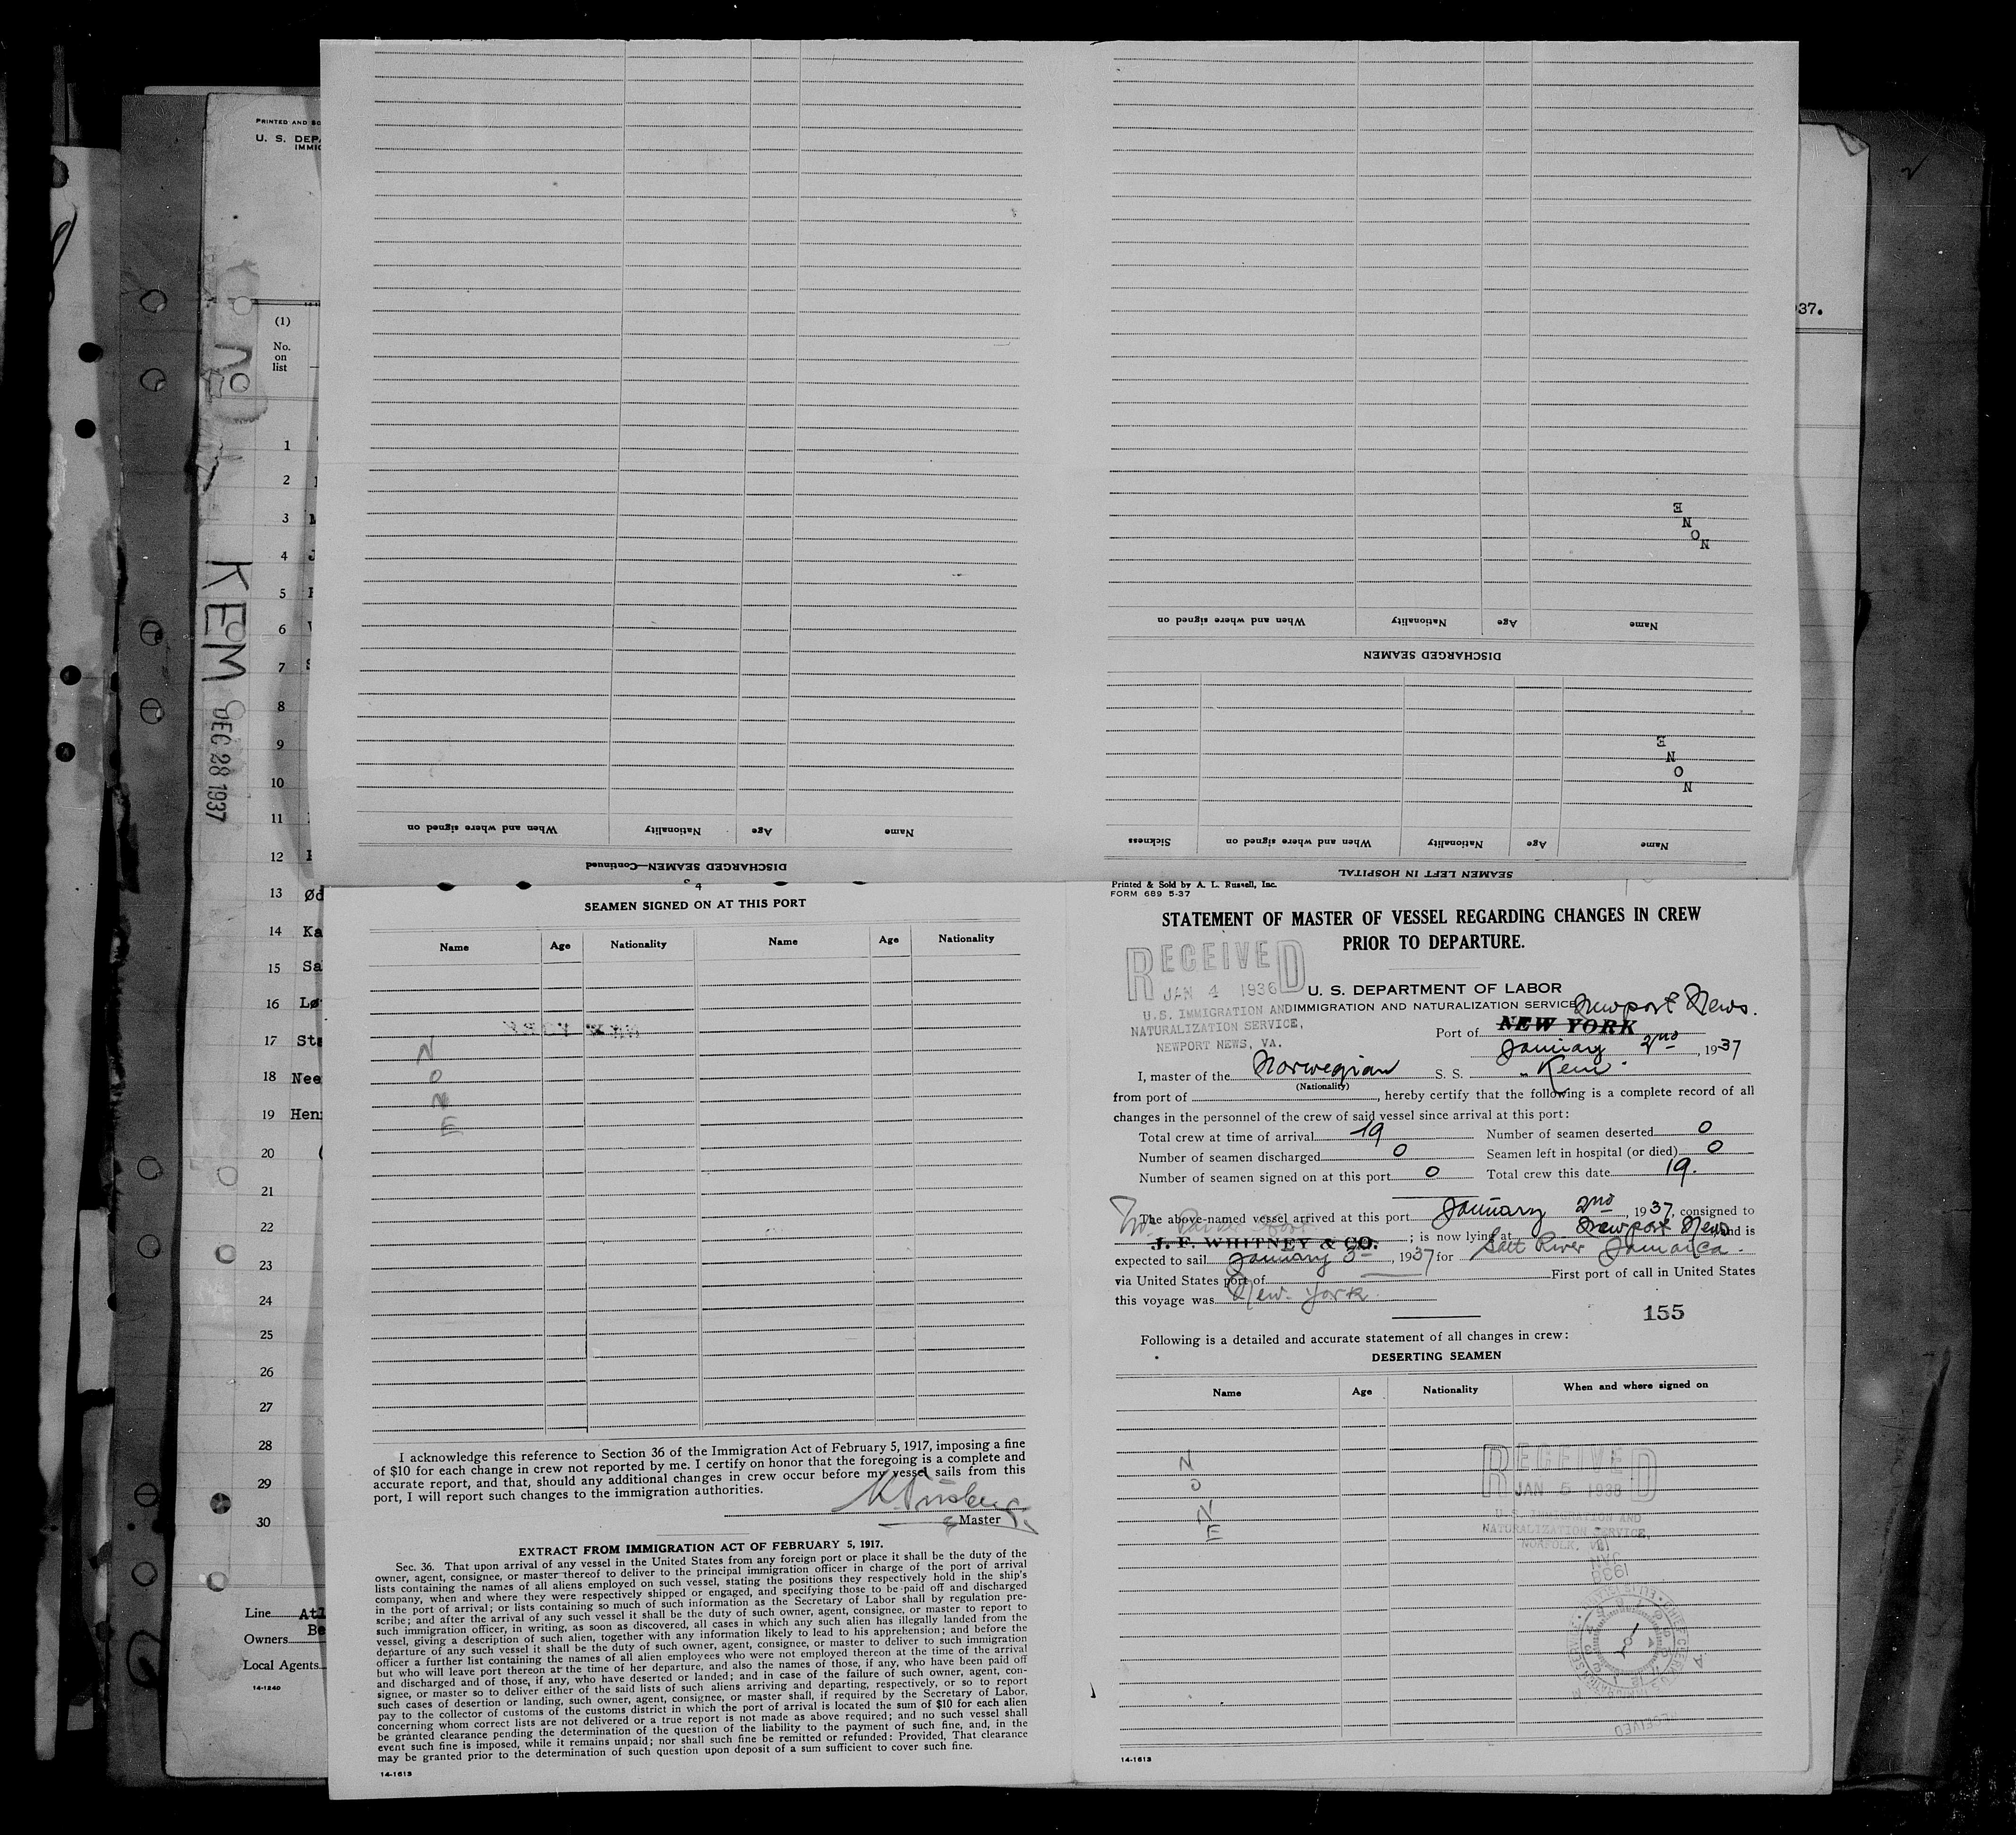 PRINTED AND SO
U. S. DEPA
IMMIG
(1)
No.
on
list
1
2
3 M
4 J
5
6
7 S
8
9
10
11
12
13 Ød
14 Ka
15 Sa
16 Lø
17 Sta
18 Nee
19 Hen
20 (
21
22
23
24
25
26
27
28
29
30
Line Atl
Be
Owners
Local Agents
14-1240
KEM
DEC 28 1937
37.
NONE
When and where signed on Nationality Age Name
DISCHARGED SEAMEN
NONE
Sickness When and where signed on Nationality Age Name
SEAMEN LEFT IN HOSPITAL
When and where signed on Nationality Age Name
DISCHARGED SEAMEN—Continued
4
SEAMEN SIGNED ON AT THIS PORT
Name Age Nationality Name Age Nationality
NEW YORK
NONE
I acknowledge this reference to Section 36 of the Immigration Act of February 5, 1917, imposing a fine
of $10 for each change in crew not reported by me. I certify on honor that the foregoing is a complete and
accurate report, and that, should any additional changes in crew occur before my vessel sails from this
port, I will report such changes to the immigration authorities.
Master
EXTRACT FROM IMMIGRATION ACT OF FEBRUARY 5, 1917.
Sec. 36. That upon arrival of any vessel in the United States from any foreign port or place it shall be the duty of the
owner, agent, consignee, or master thereof to deliver to the principal immigration officer in charge of the port of arrival
lists containing the names of all aliens employed on such vessel, stating the positions they respectively hold in the ship's
company, when and where they were respectively shipped or engaged, and specifying those to be paid off and discharged
in the port of arrival; or lists containing so much of such information as the Secretary of Labor shall by regulation pre-
scribe; and after the arrival of any such vessel it shall be the duty of such owner, agent, consignee, or master to report to
such immigration officer, in writing, as soon as discovered, all cases in which any such alien has illegally landed from the
vessel, giving a description of such alien, together with any information likely to lead to his apprehension; and before the
departure of any such vessel it shall be the duty of such owner, agent, consignee, or master to deliver to such immigration
officer a further list containing the names of all alien employees who were not employed thereon at the time of the arrival
but who will leave port thereon at the time of her departure, and also the names of those, if any, who have been paid off
and discharged and of those, if any, who have deserted or landed; and in case of the failure of such owner, agent, con-
signee, or master so to deliver either of the said lists of such aliens arriving and departing, respectively, or so to report
such cases of desertion or landing, such owner, agent, consignee, or master shall, if required by the Secretary of Labor,
pay to the collector of customs of the customs district in which the port of arrival is located the sum of $10 for each alien
concerning whom correct lists are not delivered or a true report is not made as above required; and no such vessel shall
be granted clearance pending the determination of the question of the liability to the payment of such fine, and, in the
event such fine is imposed, while it remains unpaid; nor shall such fine be remitted or refunded: Provided, That clearance
may be granted prior to the determination of such question upon deposit of a sum sufficient to cover such fine.
14-1613
Printed & Sold by A. L. Russell, Inc.
FORM 689 5-37
STATEMENT OF MASTER OF VESSEL REGARDING CHANGES IN CREW
PRIOR TO DEPARTURE.
RECEIVED
JAN 4 1936
U.S. IMMIGRATION AND
NATURALIZATION SERVICE,
NEWPORT NEWS, VA.
U. S. DEPARTMENT OF LABOR
IMMIGRATION AND NATURALIZATION SERVICE
Newport News.
Port of NEW YORK
January 2nd, 1937
I, master of the Norwegian S. S. "Kem"
(Nationality)
from port of , hereby certify that the following is a complete record of all
changes in the personnel of the crew of said vessel since arrival at this port:
Total crew at time of arrival 19 Number of seamen deserted 0
Number of seamen discharged 0 Seamen left in hospital (or died) 0
Number of seamen signed on at this port 0 Total crew this date 19.
The above-named vessel arrived at this port January 2nd, 1937, consigned to
J. F. WHITNEY & CO. ; is now lying at Newport News and is
expected to sail January 3, 1937 for Salt River Jamaica.
via United States port of First port of call in United States
this voyage was New York.
155
Following is a detailed and accurate statement of all changes in crew:
DESERTING SEAMEN
Name Age Nationality When and where signed on
NONE
RECEIVED
JAN 5 1938
U.S. IMMIGRATION AND
NATURALIZATION SERVICE,
NORFOLK, VA.
JAN
1938
RECEIVED
14-1613